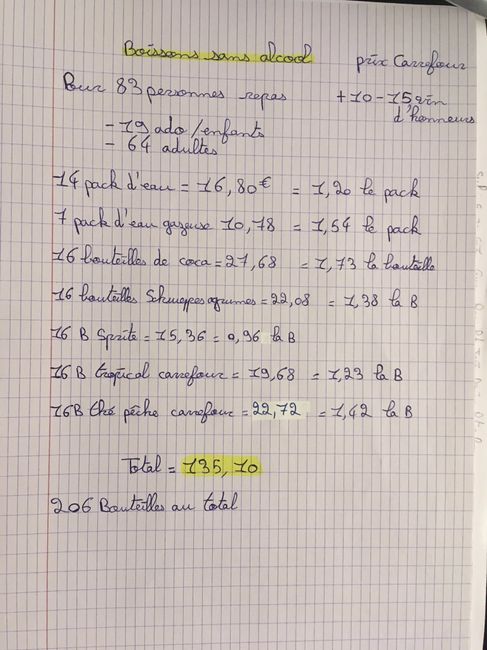 Boissons sans alcool
prix Carrefour
Pour 83 personnes repas
+10-15 vin
d'honneurs
- 19 ado/enfants
- 64 adultes
14 pack d'eau = 16,80€ = 1,20 le pack
7 pack d'eau gazeuse 10,78 = 1,54 le pack
16 bouteilles de coca = 27,68 = 1,73 la bouteille
16 bouteilles Schweppes agrumes = 22,08 = 1,38 la B
16 B Sprite = 15,36 = 0,96 la B
16 B tropical carrefour = 19,68 = 1,23 la B
16B thé pêche carrefour = 22,72 = 1,42 la B
Total = 135,10
206 Bouteilles au total